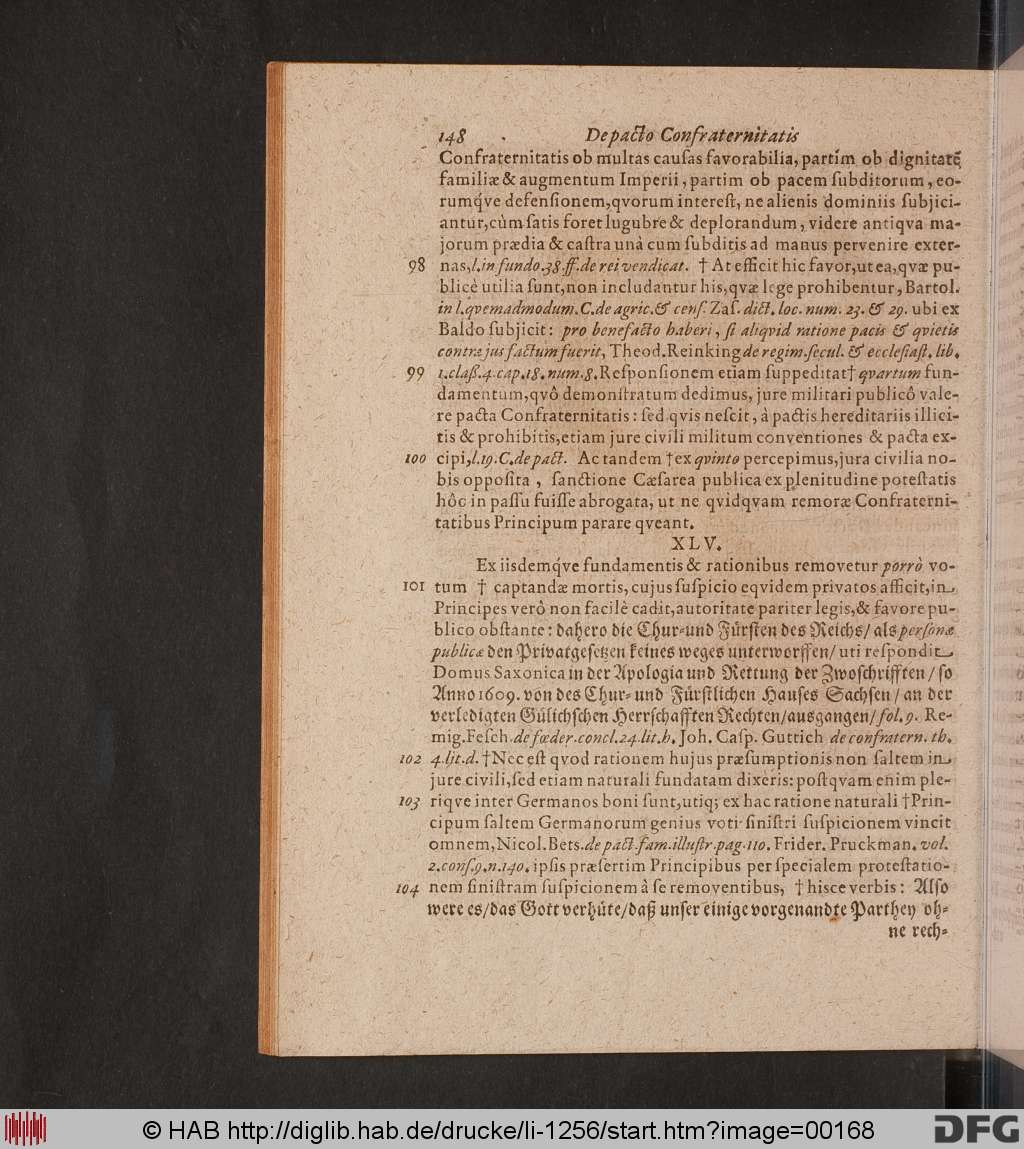 148 De pacto Confraternitatis
Confraternitatis ob multas cauſas favorabilia, partim ob dignitatẽ
familiæ & augmentum Imperii, partim ob pacem ſubditorum, eo-
rumq́ve defenſionem, qvorum intereſt, ne alienis dominiis ſubjici-
antur, cùm ſatis foret lugubre & deplorandum, videre antiqva ma-
jorum prædia & caſtra unà cum ſubditis ad manus pervenire exter-
98 nas, l. in fundo. 38. ff. de rei vendicat. † At efficit hic favor, ut ea, qvæ pu-
blicè utilia ſunt, non includantur his, qvæ lege prohibentur, Bartol.
in l. qvemadmodum. C. de agric. & cenſ. Zaſ. dict. loc. num. 23. & 29. ubi ex
Baldo ſubjicit: pro benefacto haberi, ſi aliqvid ratione pacis & qvietis
contra jus factum fuerit, Theod. Reinking de regim. ſecul. & eccleſiaſt. lib.
99 1. claß. 4. cap. 18. num. 8. Reſponſionem etiam ſuppeditat † qvartum fun-
damentum, qvô demonſtratum dedimus, jure militari publicô vale-
re pacta Confraternitatis: ſed qvis neſcit, à pactis hereditariis illici-
tis & prohibitis, etiam jure civili militum conventiones & pacta ex-
100 cipi, l. 19. C. de pact. Ac tandem † ex qvinto percepimus, jura civilia no-
bis oppoſita, ſanctione Cæſarea publica ex plenitudine poteſtatis
hôc in paſſu fuiſſe abrogata, ut ne qvidqvam remoræ Confraterni-
tatibus Principum parare qveant.
XLV.
Ex iisdemq́ve fundamentis & rationibus removetur porrò vo-
101 tum † captandæ mortis, cujus ſuſpicio eqvidem privatos afficit, in
Principes verô non facilè cadit, autoritate pariter legis, & favore pu-
blico obſtante: dahero die Chur- und Fürſten des Reichs/ als perſonæ
publicæ den Privatgeſetzen keines weges unterworffen/ uti reſpondit
Domus Saxonica in der Apologia und Rettung der Zwoſchrifften/ ſo
Anno 1609. von des Chur- und Fürſtlichen Hauſes Sachſen/ an der
verledigten Gülichſchen Herrſchafften Rechten/ ausgangen/ fol. 9. Re-
mig. Feſch. de fœder. concl. 24. lit. h. Joh. Caſp. Guttich de confratern. th.
102 4. lit. d. † Nec eſt qvod rationem hujus præſumptionis non ſaltem in
jure civili, ſed etiam naturali fundatam dixeris: poſtqvam enim ple-
103 riqve inter Germanos boni ſunt, utiq; ex hac ratione naturali † Prin-
cipum ſaltem Germanorum genius voti ſiniſtri ſuſpicionem vincit
omnem, Nicol. Bets. de pact. fam. illuſtr. pag. 110. Frider. Pruckman. vol.
2. conſ. 9. n. 140. ipſis præſertim Principibus per ſpecialem proteſtatio-
104 nem ſiniſtram ſuſpicionem â ſe removentibus, † hisce verbis: Alſo
were es/ das Gott verhüte/ daß unſer einige vorgenandte Parthey oh-
ne rech-
© HAB http://diglib.hab.de/drucke/li-1256/start.htm?image=00168
DFG